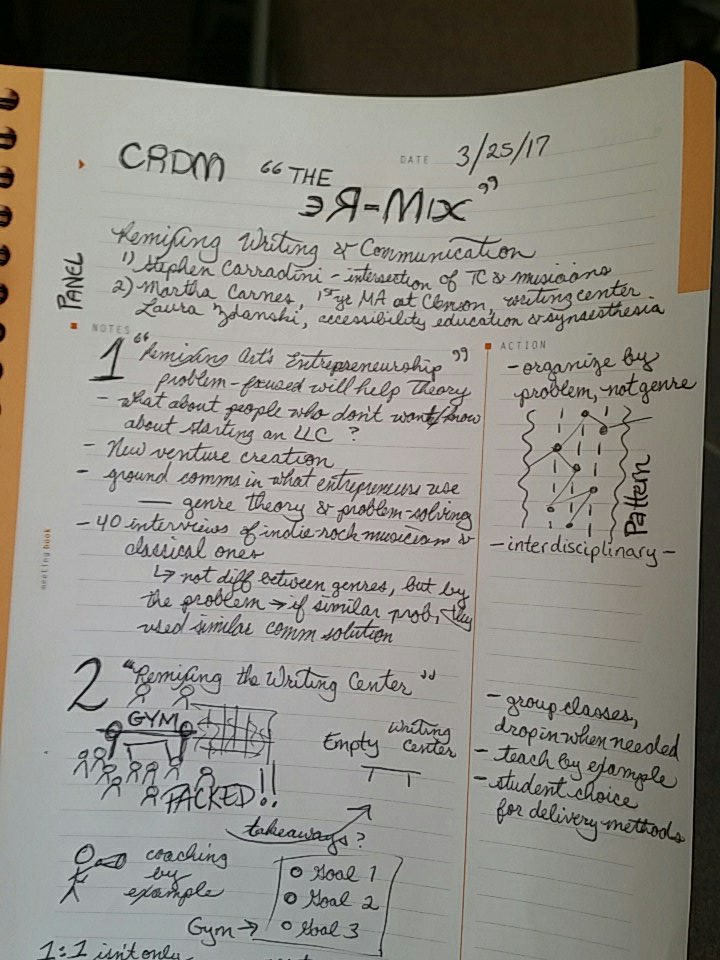 CRDM "THE
DATE 3/25/17
ЭЯ=MIX"
Remixing Writing & Communication
PANEL
1) Stephen Carradini - intersection of TC & musicians
2) Martha Carnes, 1st yr MA at Clemson, writing center
Laura Zdanski, accessibility education & synaesthesia
NOTES
1 "Remixing Art's Entrepreneurship"
problem-focused will help theory
- what about people who don't want/know
about starting an LLC?
- New venture creation
- ground comms in what entrepreneurs use
— genre theory & problem-solving
- 40 interviews of indie-rock musicians &
classical ones
↳ not diff between genres, but by
the problem → if similar prob, they
used similar comm solution
meeting book
ACTION
- organize by
problem, not genre
Pattern
- interdisciplinary -
2 "Remixing the Writing Center"
GYM
PACKED!!
Empty Writing
Center
takeaways?
coaching
by
example
Gym →
○ Goal 1
○ Goal 2
○ Goal 3
- group classes,
drop in when needed
- teach by example
- student choice
for delivery methods
1:1 isn't only